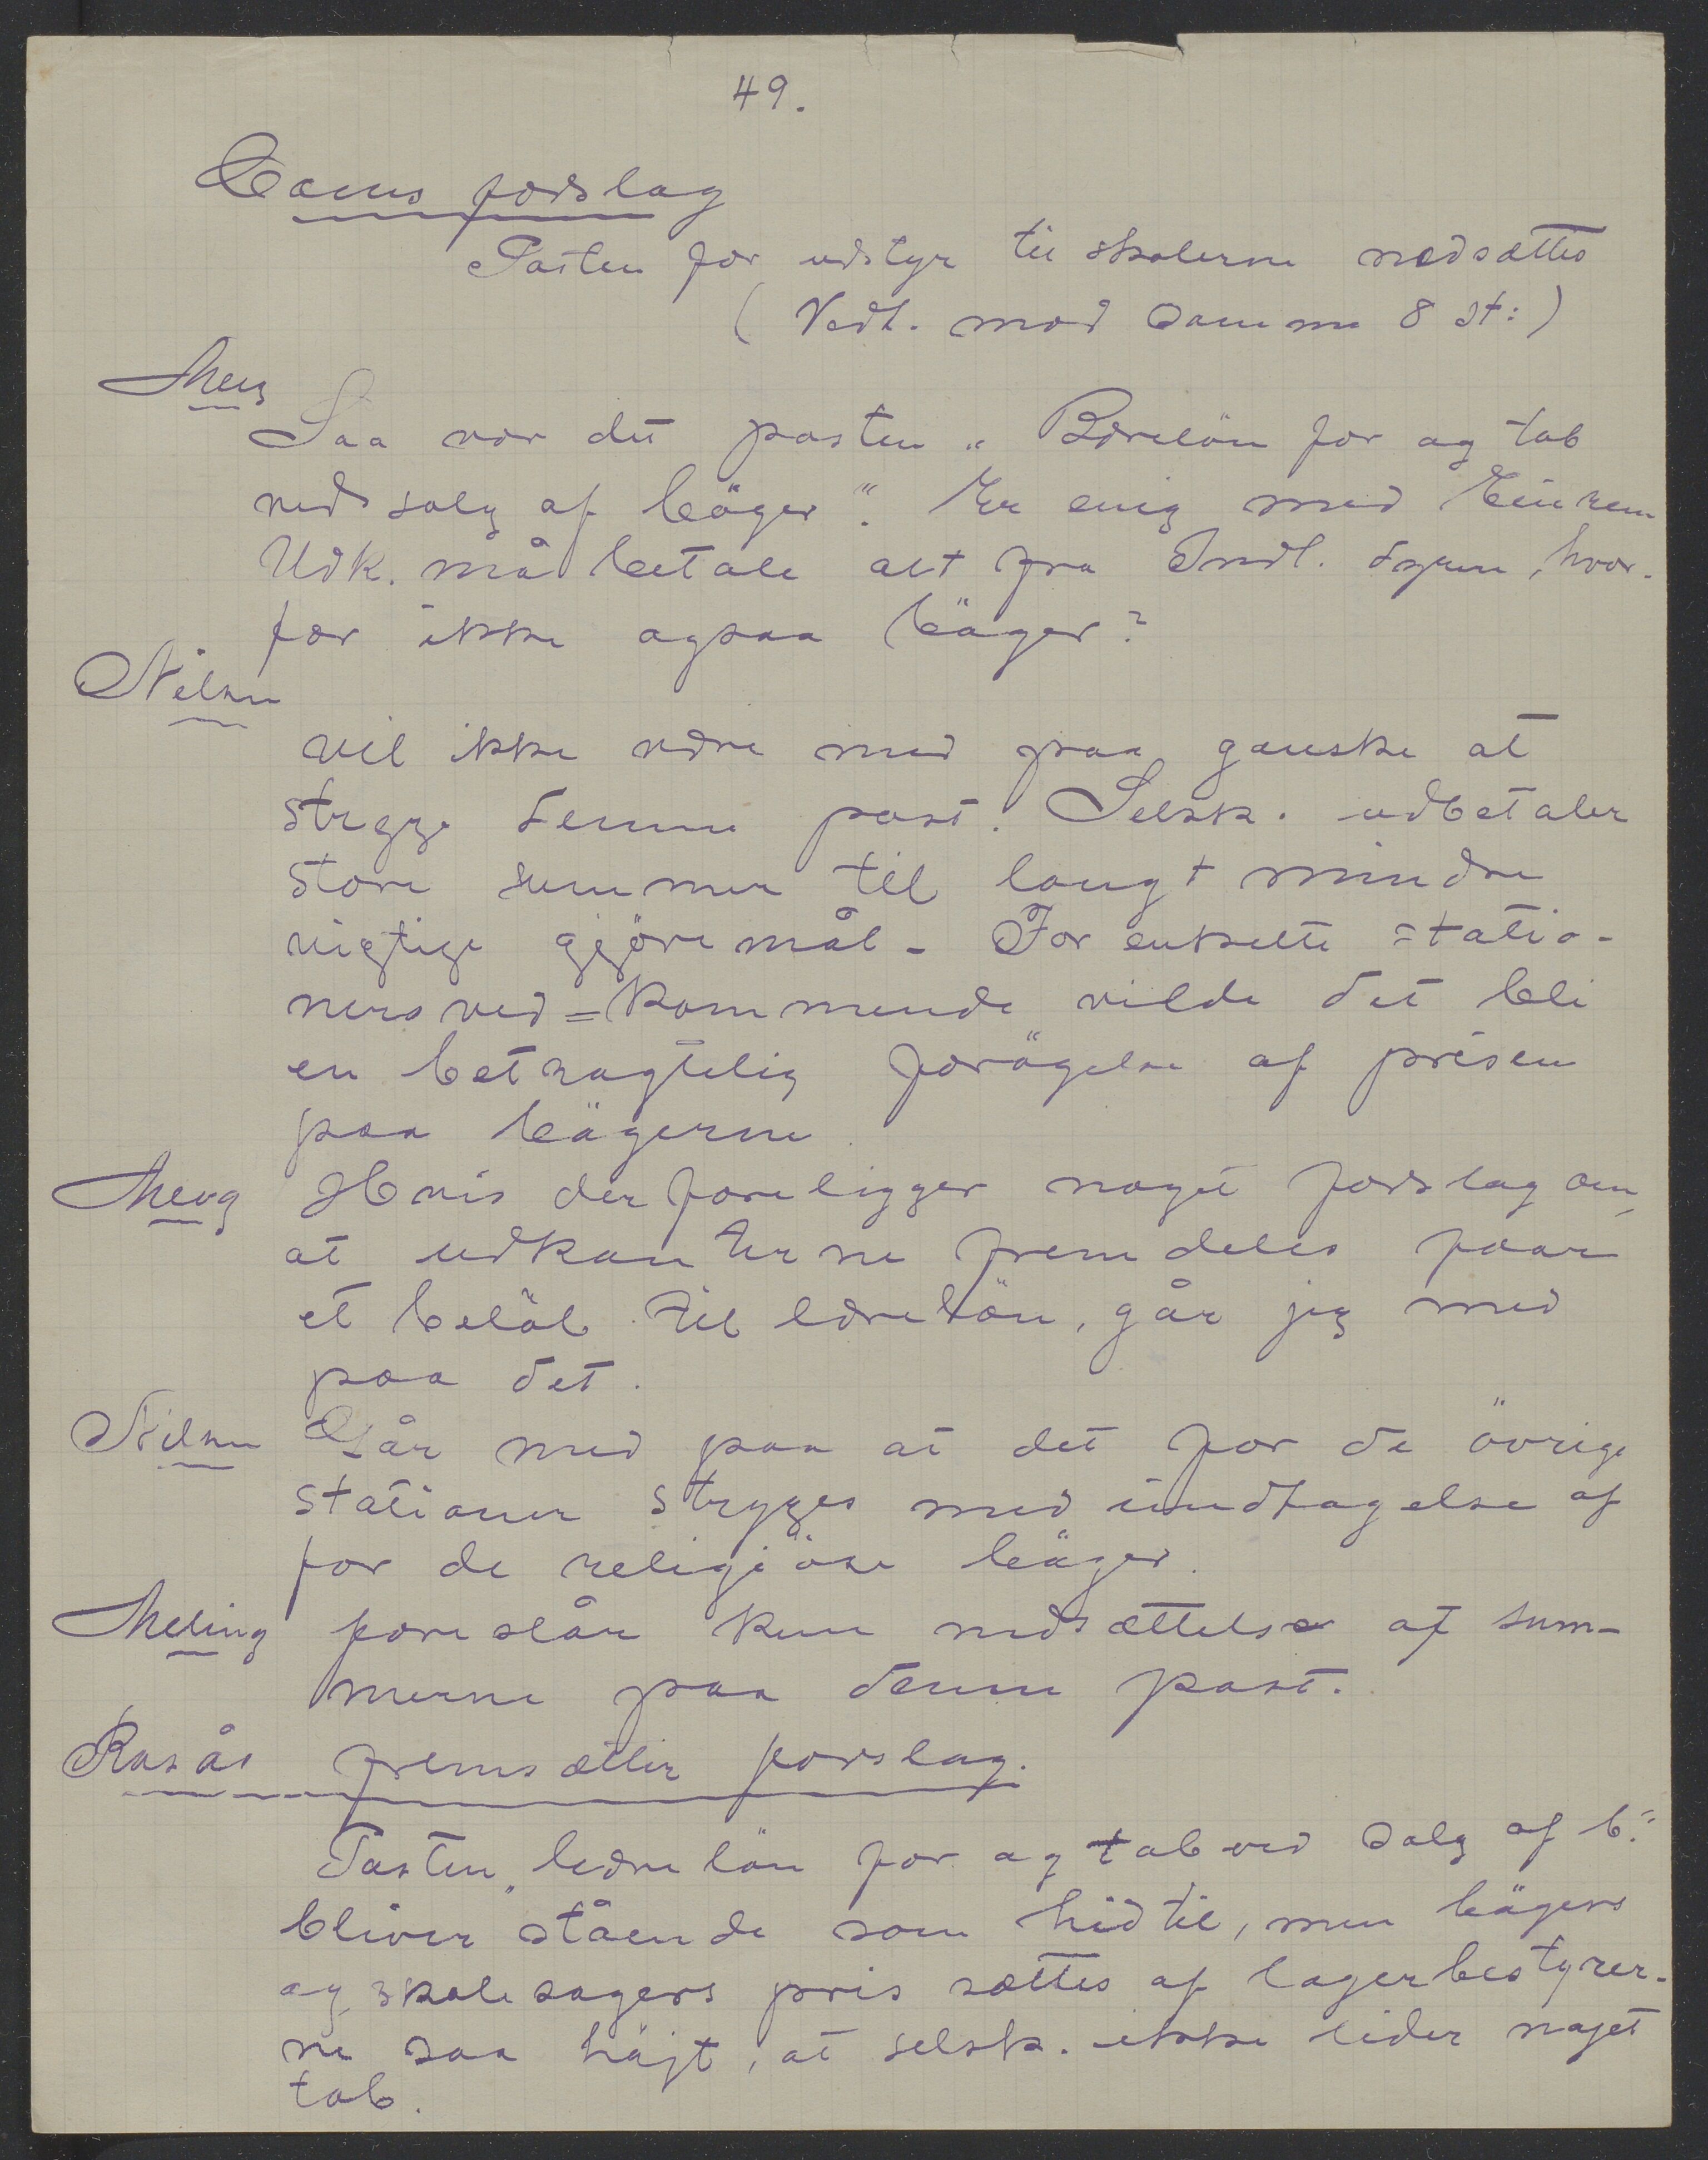 49.
Borchgrevinks forslag
Posten for udstyr til skolerne nedsættes
(Vedt. mod samme 8 st:)
Meng
Saa var det posten "Bærelön for og tab
ved salg af böger". Er enig med Einrem
Udk. må betale alt fra Indl. synen, hvor-
for ikke ogsaa böger?
Nilsen
vil ikke være med paa ganske at
stryge denne post. Selsk. udbetaler
store summer til langt mindre
vigtige gjöremål - For enkelte statio-
ners ved=kommende vilde det bli
en betragtelig forögelse af prisen
paa bögerne.
Meng Hvis der foreligger noget forslag om,
at udkanterne fremdeles faar
et belöb til bærelön, går jeg med
paa det.
Nilsen Går med paa at det for de övrige
stationer stryges med undtagelse af
for de religiöse böger.
Meling foreslår kun nedsættelse af sum-
merne paa denne post.
Rosås fremsætter forslag.
Posten "bærelön for og tab ved salg af b."
bliver stående som hidtil, men bögers
og skolesagers pris sættes af lagerbestyrer-
ne saa höjt, at selsk. ikke lider noget
tab.